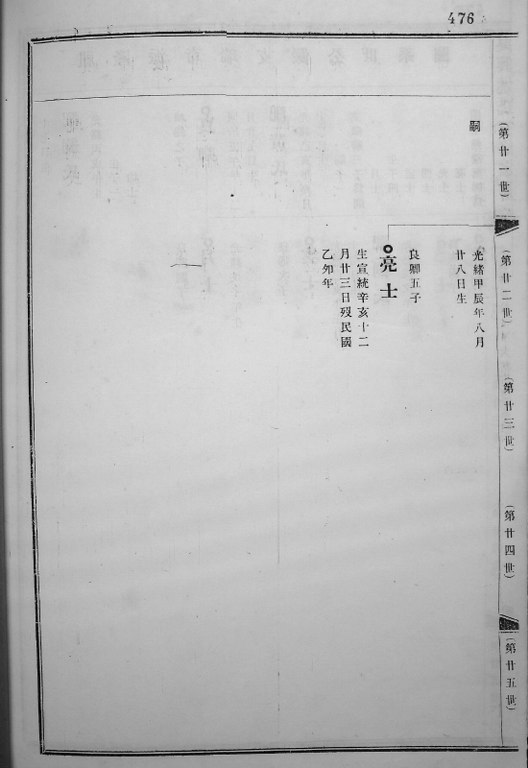 476
(第廿一世)
(第廿二世)
(第廿三世)
(第廿四世)
(第廿五世)
嗣
光緒甲辰年八月
廿八日生
良卿五子
亮士
生宣統辛亥十二
月廿三日歿民國
乙卯年